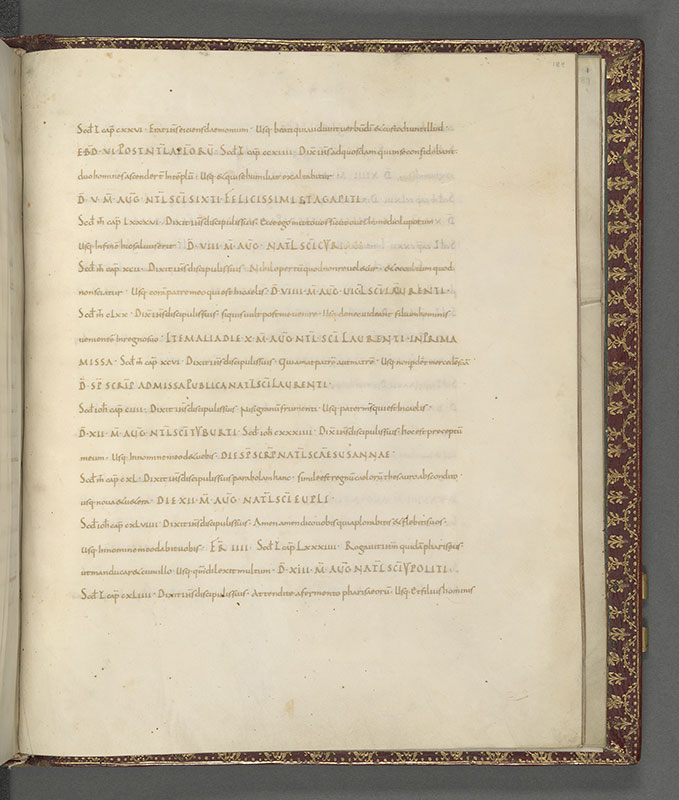 189
Scd̄ L cap̄ cxxvi · Erat ihs eiciens daemonium · Usq; beati qui audiunt uerbū dī & custodiunt illud ·
EBD · VI POST NTL APTORŪ · Scd̄ L cap̄ ccxiiii · Dix̄ ihs ad quosdam qui in se confidebant ·
duo homines ascender̄ in templū · Usq; & qui se humiliat exaltabitur
D̄ · V · M̄ · AUG̅ · NTL̄ SCI SIXTI FELICISSIMI ET AGAPITI ·
Scd̄ m̄ cap̄ Lxxxvi · Dixit ihs discipulis suis · Ecce ego mitto uos sicut oues in medio luporum
Usq; hic saluus erit · D̄ · VIII · M̄ · AUG̅ · NATL̄ SCI
Scd̄ m̄ cap̄ xcii · Dixit ihs discipulis suis · Nihil opertū quod non reueletur · & occultum quod
non sciatur · Usq; corā patre meo qui est in caelis · D̄ · VIIII · M̄ · AUG̅ · UIGL̄ SCI LAURENTI ·
Scd̄ m̄ cLxx · Dix̄ ihs discipulis suis · si quis uult post me uenire · Usq; donec uideant filium hominis
uenientem in regno suo · ITEM ALIA DIE X · M̄ · AUG̅ NTL̄ · SCI LAURENTI · IN PRIMA
MISSA · Scd̄ m̄ cap̄ xcvi · Dixit ihs discipulis suis · Qui amat patrē aut matrē · Usq;
D̄ · SP̄ SCRIP̄ AD MISSA PUBLICA NATL̄ SCI LAURENTI ·
Scd̄ ioh̄ cap̄ ciiii · Dixit ihs discipulis suis · Nisi granū frumenti · Usq; pater ms qui est in caelis ·
D̄ · XII · M̄ · AUG̅ · NTL̄ SCI TYBURTI · Scd̄ ioh̄ cxxxviiii · Dix̄ ihs discipulis suis · hoc est preceptū
meum · Usq; in nomine meo det uobis · DIE SP̄ SCRP̄ NATL̄ SCAE SUSANNAE ·
Scd̄ m̄ cap̄ cxL · Dixit ihs discipulis suis parabolam hanc · simile est regnū caelorū thesauro abscondito ·
usq; noua & uetera · DIE XII · M̄ · AUG̅ · NATL̄ SCI EUPLI ·
Scd̄ ioh̄ cap̄ cxLviiii · Dixit ihs discipulis suis · Amen amen dico uobis quia plorabitis & flebitis uos ·
Usq; in nomine meo dabit uobis · FR̄ · IIII · Scd̄ L cap̄ Lxxxiiii · Rogauit ihm quidā phariseus
ut manducar& cum illo · Usq; qm̄ dilexit multum · D̄ · XIII · M̄ · AUG̅ NATL̄ SCI YPOLITI ·
Scd̄ L cap̄ cxLiiii · Dixit ihs discipulis suis · Attendite a fermento phariseorū · Usq; et filius hominis